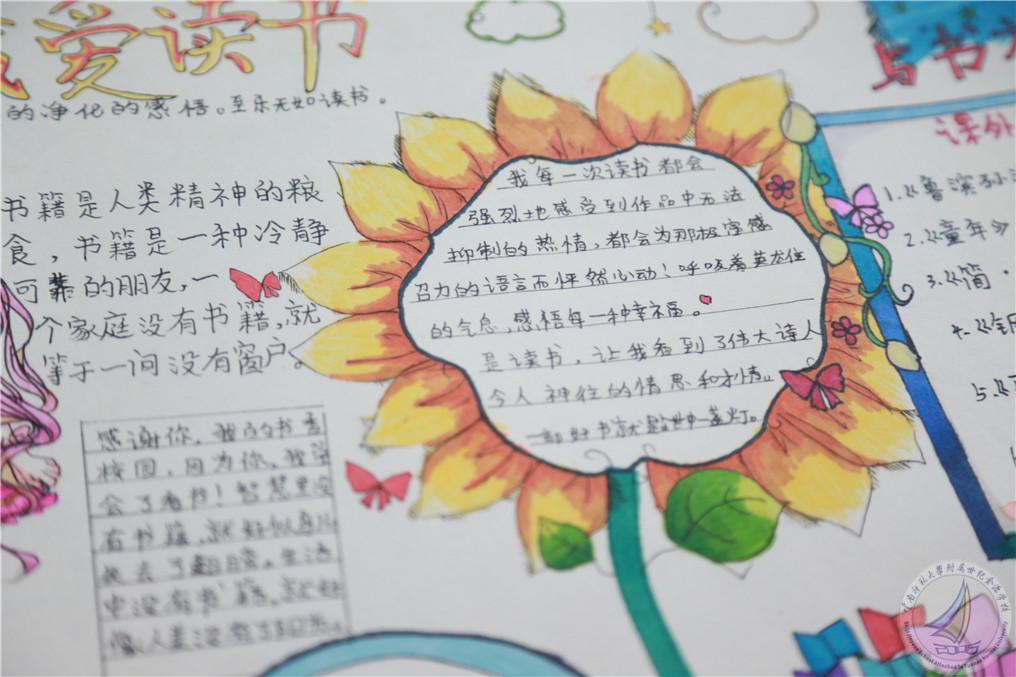 爱读书
的净化的感悟。至乐无如读书。
书籍是人类精神的粮
食，书籍是一种冷静
可靠的朋友，一
个家庭没有书籍，就
等于一间没有窗户。
我每一次读书都会
强烈地感受到作品中无法
抑制的热情，都会为那极富感
召力的语言而怦然心动！呼吸着
的气息，感悟每一种幸福。
是读书，让我看到了伟大诗人
令人神往的情思和才情。
一部好书就是一盏灯。
感谢你，我的书香
校园，因为你，我学
会了看书！智慧里没
有书籍，就好似鸟儿
失去了翅膀。生活
中没有书籍，就好
像人类没有了阳光。
与书
课外
1.《鲁滨孙
2.《童年
3.《简·
4.《钢
5.《